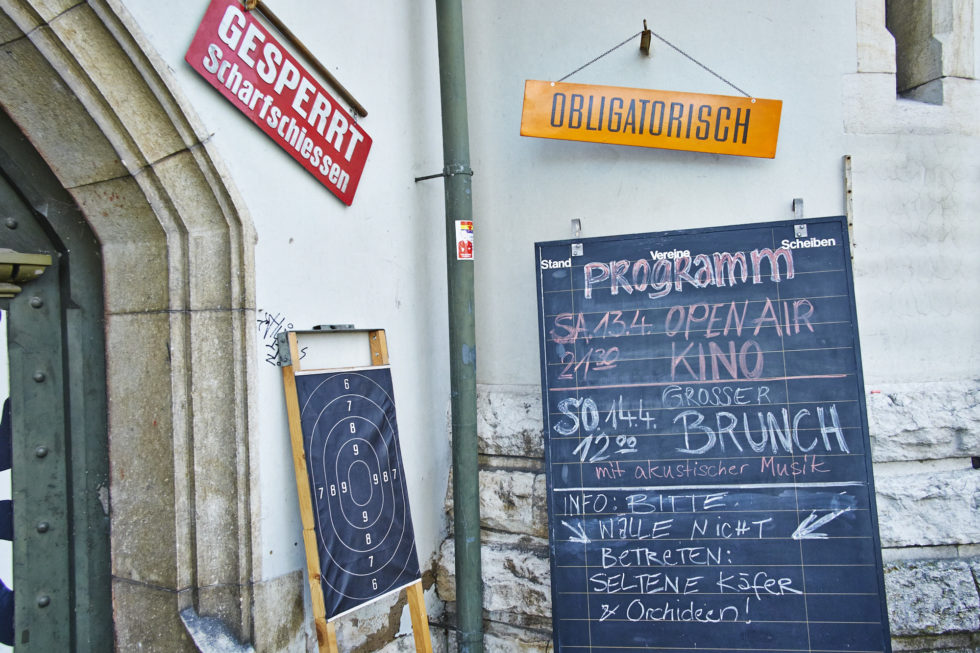 GESPERRT
Scharfschiessen
OBLIGATORISCH
Stand Vereine Scheiben
PROGRamm
SA.13.4. OPEN AIR
21.30 KINO
GROSSER
SO.14.4. BRUNCH
12.00
mit akustischer Musik
INFO: BITTE
WÄLLE NICHT
BETRETEN:
SELTENE Käfer
& Orchideen!
6
7
8
9
7 8 9 9 8 7
9
8
7
6